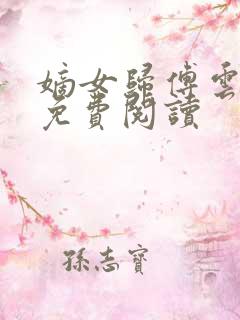 嫡女歸傅雲
免費閱讀
孫志寶